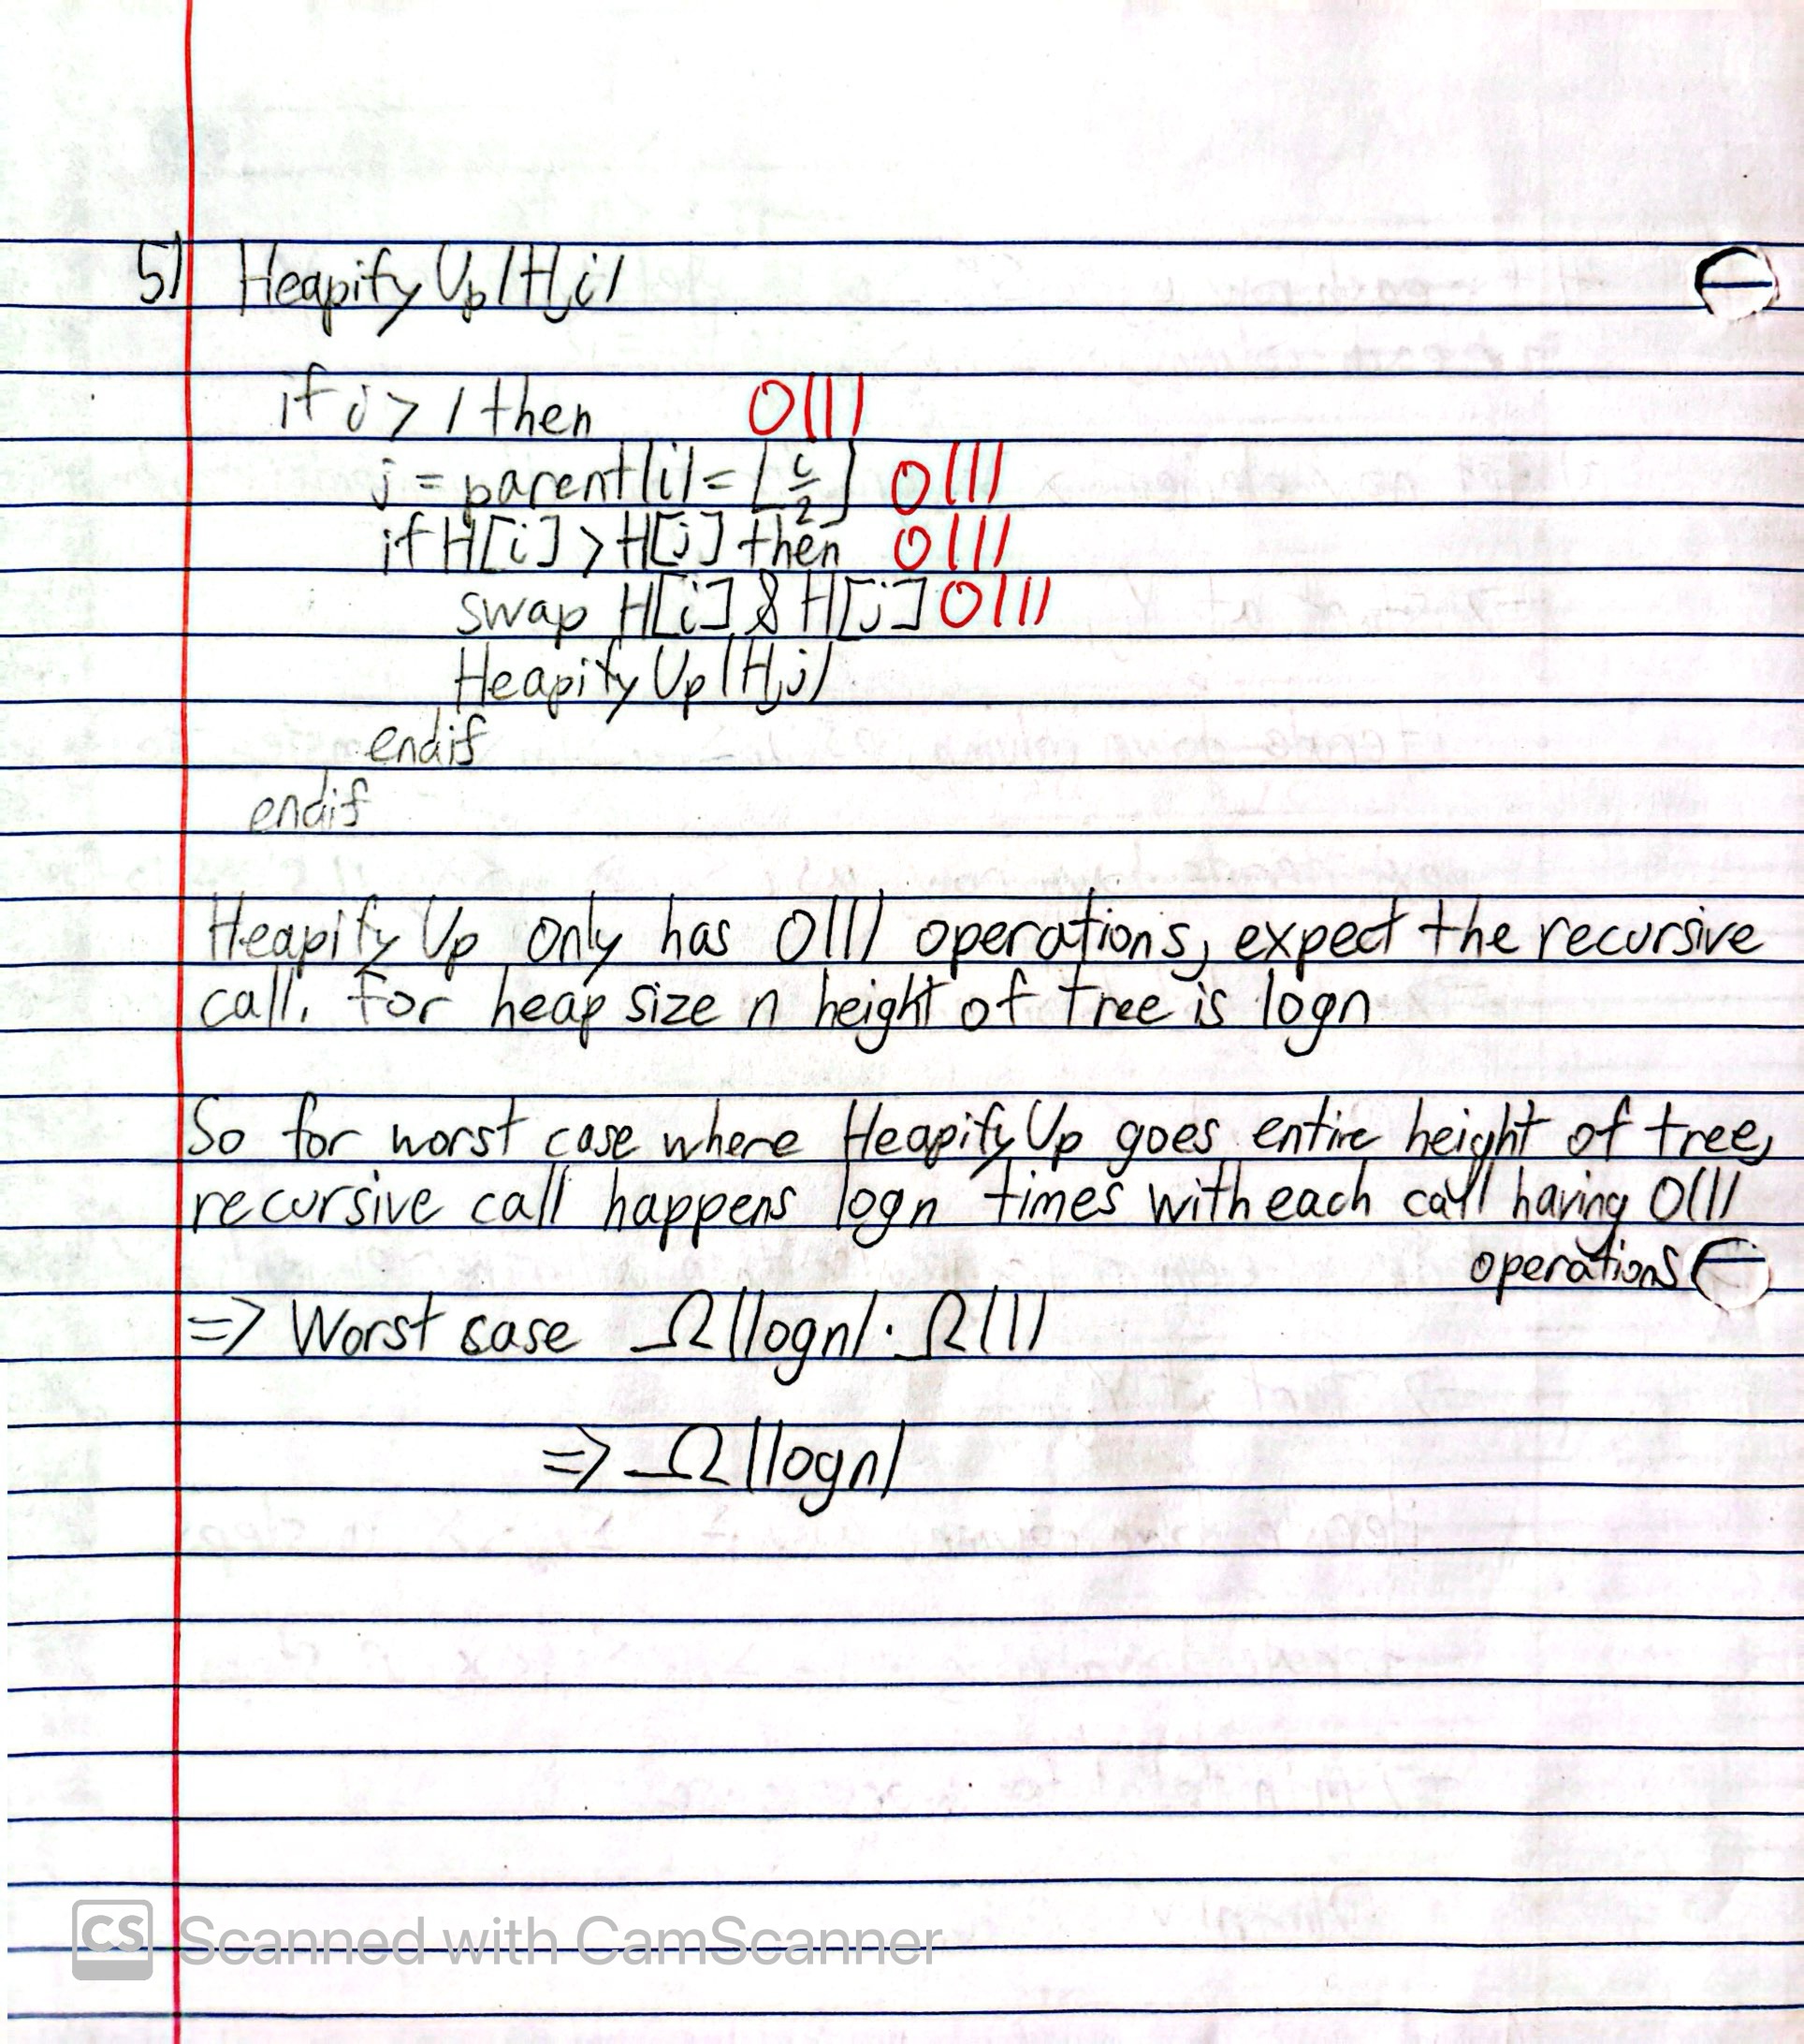 5) Heapify Up(H,i)
if i > 1 then O(1)
j = parent(i) = ⌊i/2⌋ O(1)
if H[i] > H[j] then O(1)
swap H[i] & H[j] O(1)
Heapify Up(H,j)
endif
endif
Heapify Up only has O(1) operations, expect the recursive
call. For heap size n height of tree is logn
So for worst case where Heapify Up goes entire height of tree,
recursive call happens logn times with each call having O(1)
operations
=> Worst case Ω(logn) · Ω(1)
=> Ω(logn)
CS Scanned with CamScanner